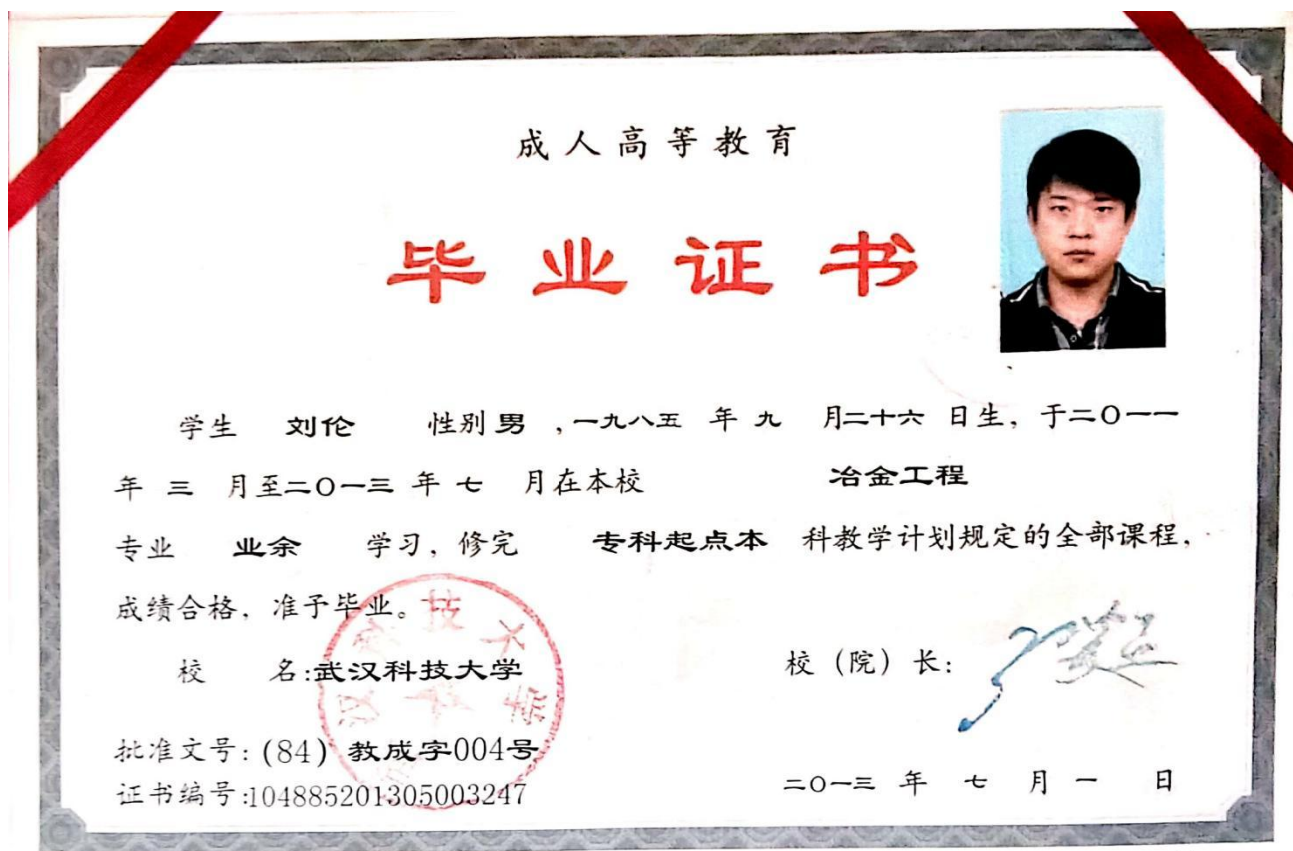 成人高等教育
毕业证书
学生 刘伦 性别 男 ,一九八五 年 九 月二十六 日生, 于二O一一
年 三 月至二O一三 年 七 月在本校 冶金工程
专业 业余 学习, 修完 专科起点本 科教学计划规定的全部课程,
成绩合格, 准予毕业。
校 名:武汉科技大学
校 (院) 长:
批准文号: (84) 教成字004号
证书编号:104885201305003247
二O一三 年 七 月 一 日